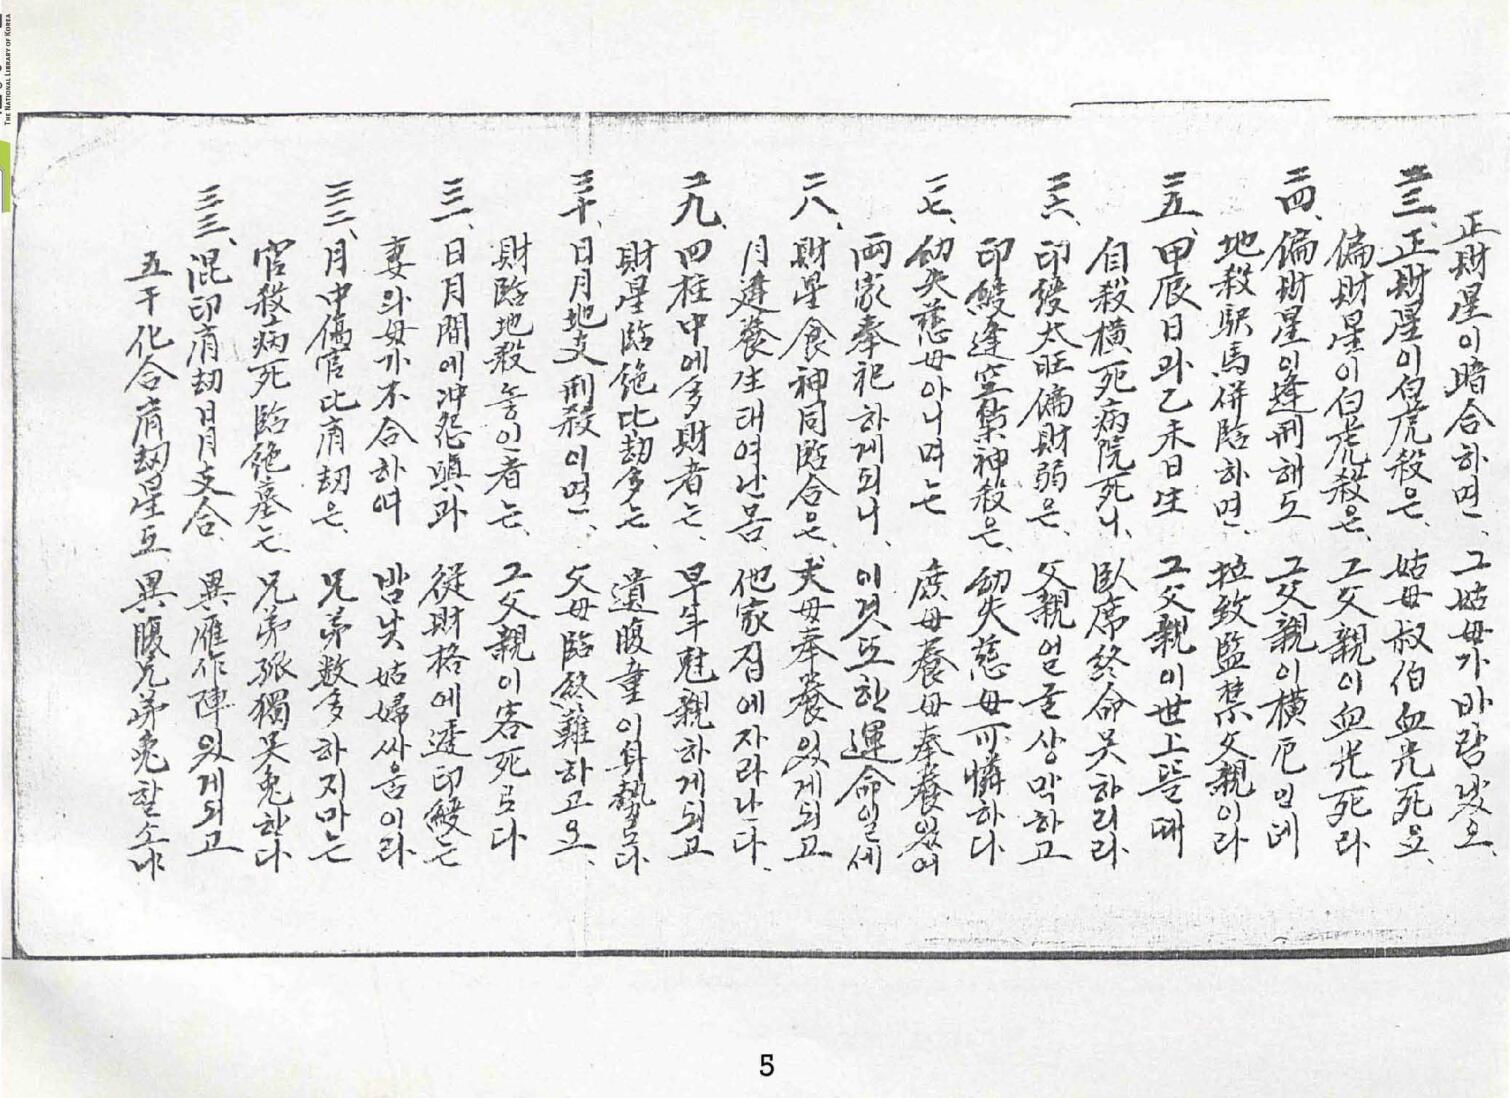 THE NATIONAL LIBRARY OF KOREA
正財星이暗合하면、 그姑母가바람났오、
二三、正財星이白虎殺은、 姑母叔伯血光死요、
偏財星이白虎殺은、 그父親이血光死라
二四、偏財星이逢刑해도 그父親이橫厄인데
地殺駅馬倂臨하면、 拉致監禁父親이라
二五、甲辰日과乙未日生 그父親이世上뜰때
自殺橫死病院死니、 臥席終命못하리라
二六、印綬太旺偏財弱은、 父親얼굴상막하고
印綬逢空梟神殺은、 幼失慈母可憐하다
二七、幼失慈母아니며는 庶母養母奉養있어
両家奉祀하게되니、 이것또한運命일세
二八、財星食神同臨合은、 丈母奉養있게되고
月逢養生태여난몸、 他家집에자라난다、
二九、四柱中에多財者는、 早年剋親하게되고
財星臨絶比劫多는、 遺腹童이身勢로다
三十、日月地支刑殺이면、 父母臨終難하고요、
財臨地殺놓인者는、 그父親이客死로다
三一、日月間에冲怨嗔과 從財格에透印綬는
妻와母가不合하여 밤낮姑婦싸움이라
三二、月中傷官比肩劫은、 兄弟数多하지마는
官殺病死臨絶墓는、 兄弟孤獨못免한다
三三、混印肩劫日月支合 異雁作陣있게되고
五干化合肩劫星도 異腹兄弟免할소냐
5